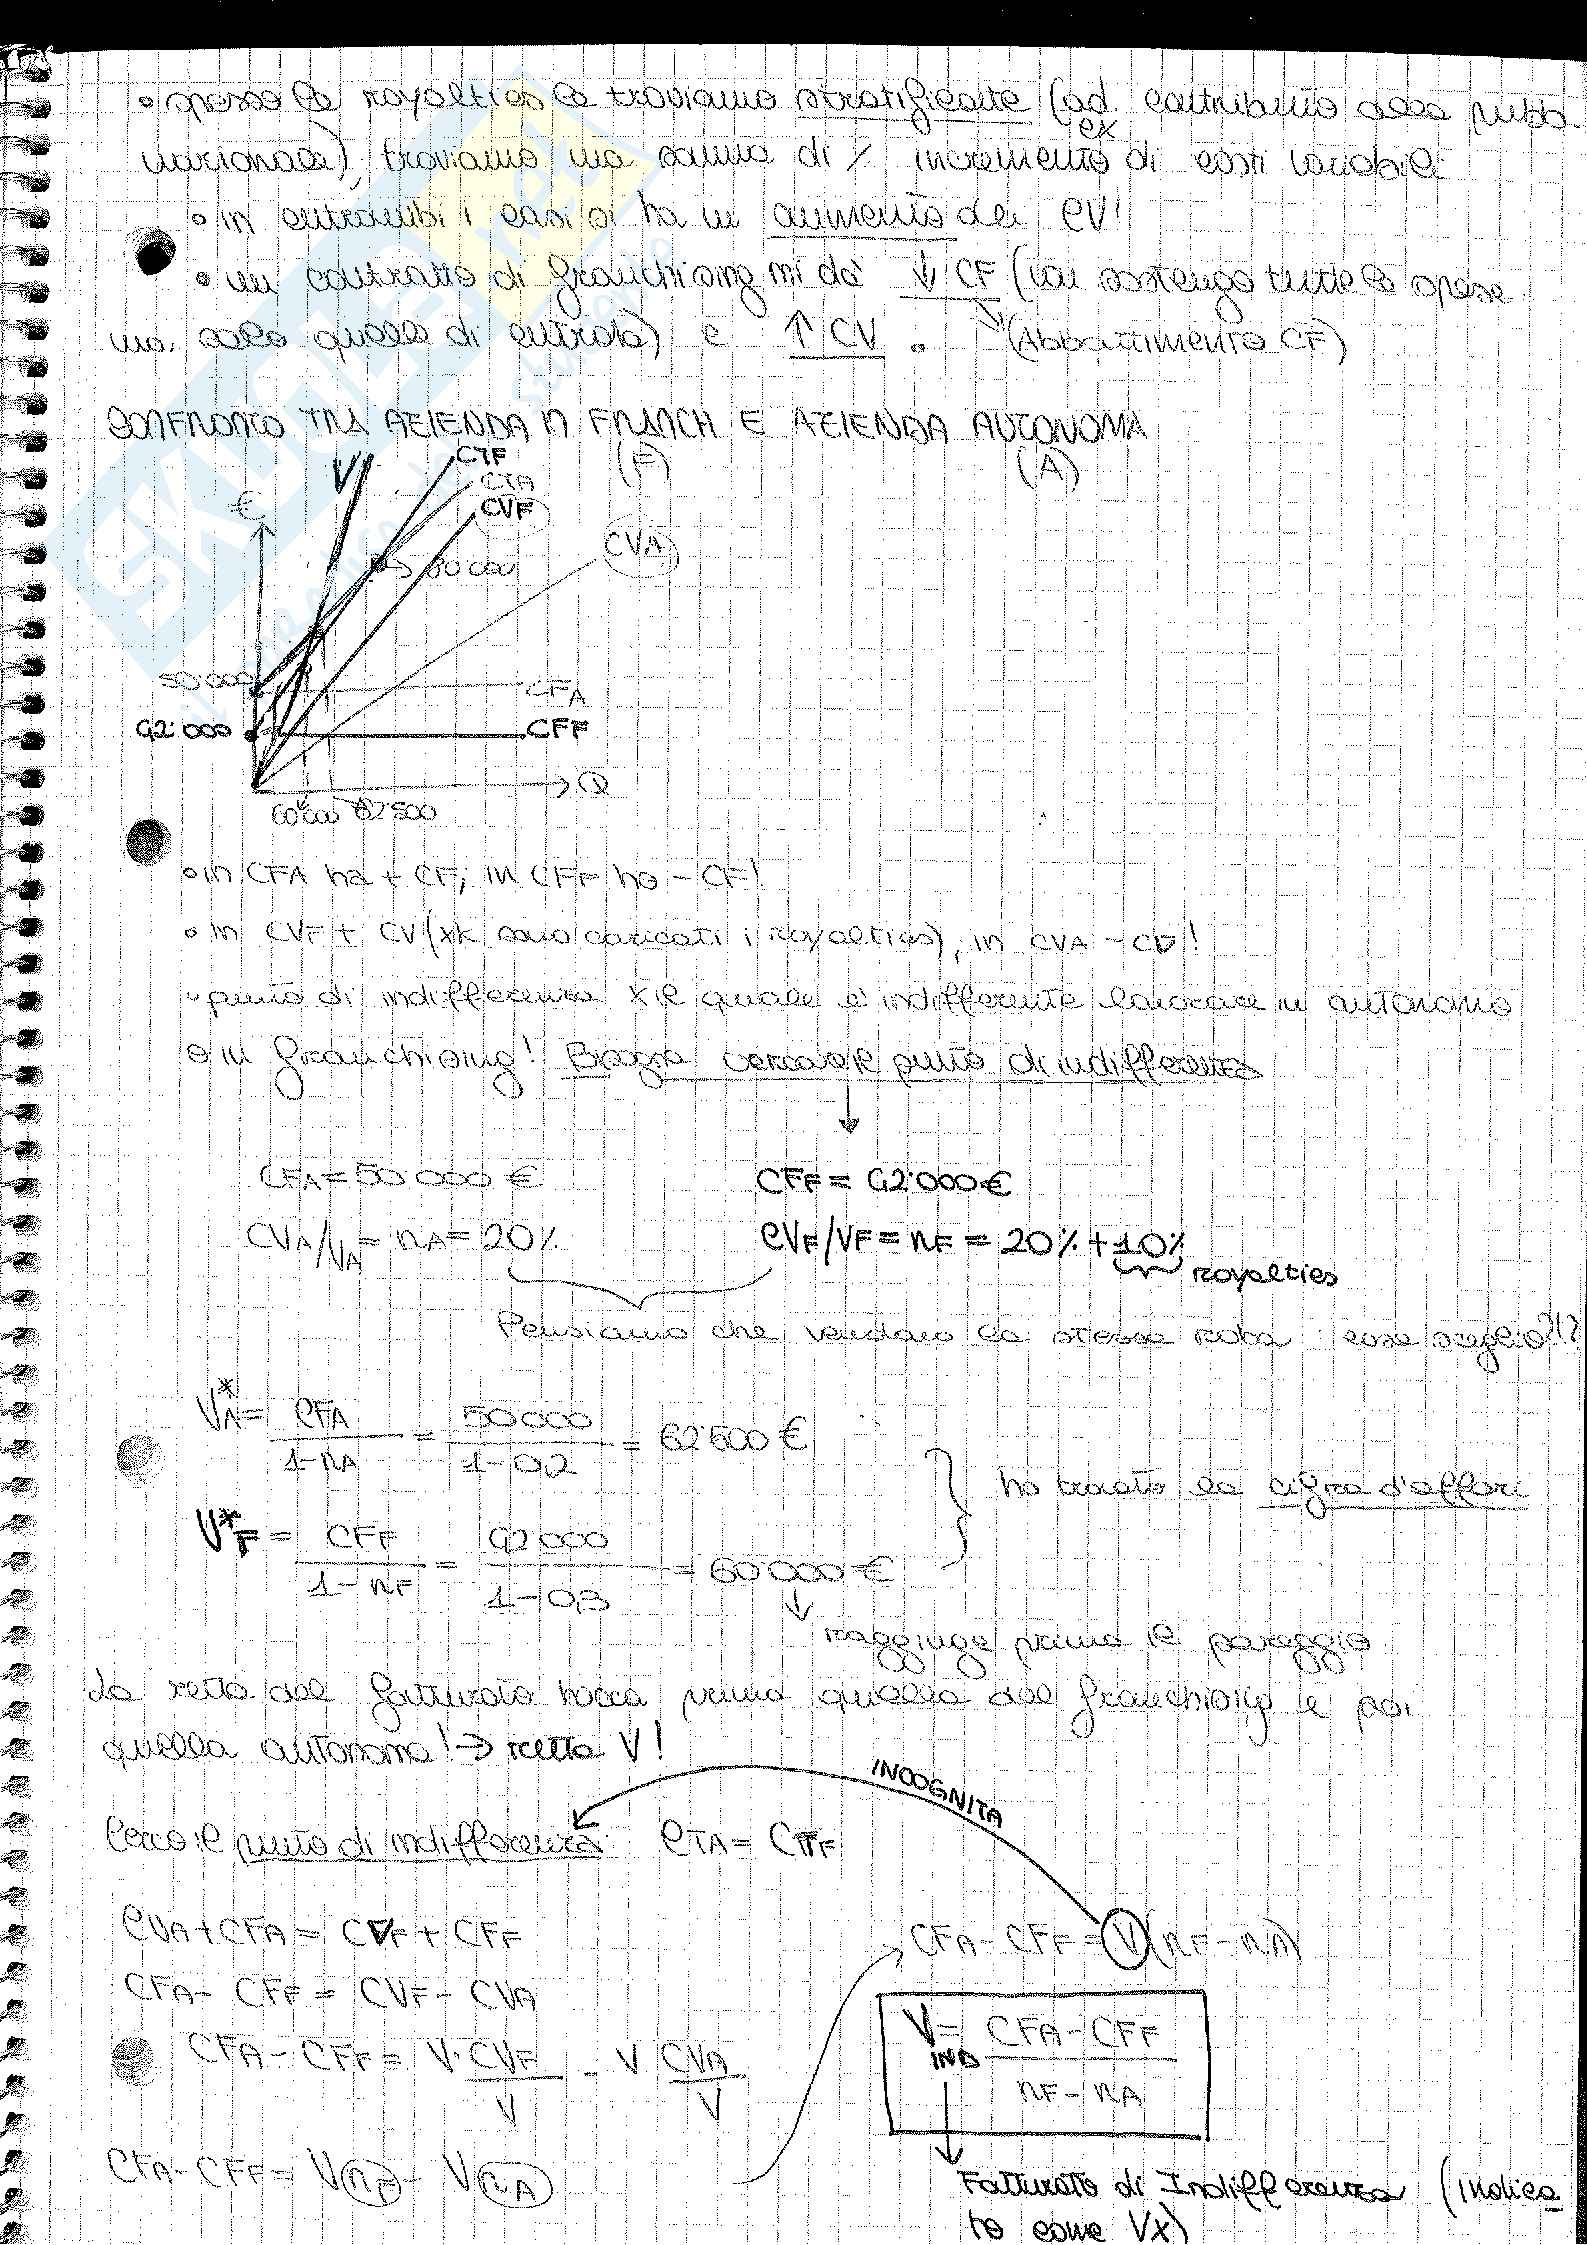 • spesso le royalties le troviamo stratificate (ad ex contributo alla pubb.
nazionale), troviamo una somma di % incremento di costi variabili
• in entrambi i casi si ha un aumento dei CV!
• un contratto di franchising mi da' ↓ CF (non sostengo tutte le spese
ma solo quelle di entrata) e ↑ CV. (Abbattimento CF)
CONFRONTO TRA AZIENDA IN FRANCH E AZIENDA AUTONOMA
(F) (A)
V CTF
CTA
€ CVF
CVA
→ 80 000
50 000 CFA
42'000 CFF
Q
60'000 62'500
• in CFA ho + CF, in CFF ho - CF!
• in CVF + CV (xk sono caricati i royalties), in CVA - CV!
• punto di indifferenza x il quale è indifferente lavorare in autonomo
o in franchising! Bisogna cercare il punto di indifferenza
CFA = 50 000 € CFF = 42'000 €
CVA/VA = nA = 20% CVF/VF = nF = 20% + 10%
royalties
Pensiamo che vendano la stessa roba cosa scelgo?!?
V*A = CFA / 1-nA = 50 000 / 1-0,2 = 62'500 €
ho trovato la cifra d'affari
V*F = CFF / 1-nF = 42 000 / 1-0,3 = 60'000 €
raggiunge prima il pareggio
La retta del fatturato tocca prima quella del franchising e poi
quella autonoma! → retta V!
INCOGNITA
Cerco il punto di indifferenza CTA = CTF
CVA + CFA = CVF + CFF
CFA - CFF = CVF - CVA
CFA - CFF = V · CVF / V - V CVA / V
CFA - CFF = V nF - V nA
CFA - CFF = V (nF - nA)
V IND = CFA - CFF / nF - nA
Fatturato di Indifferenza (indica
to come Vx)